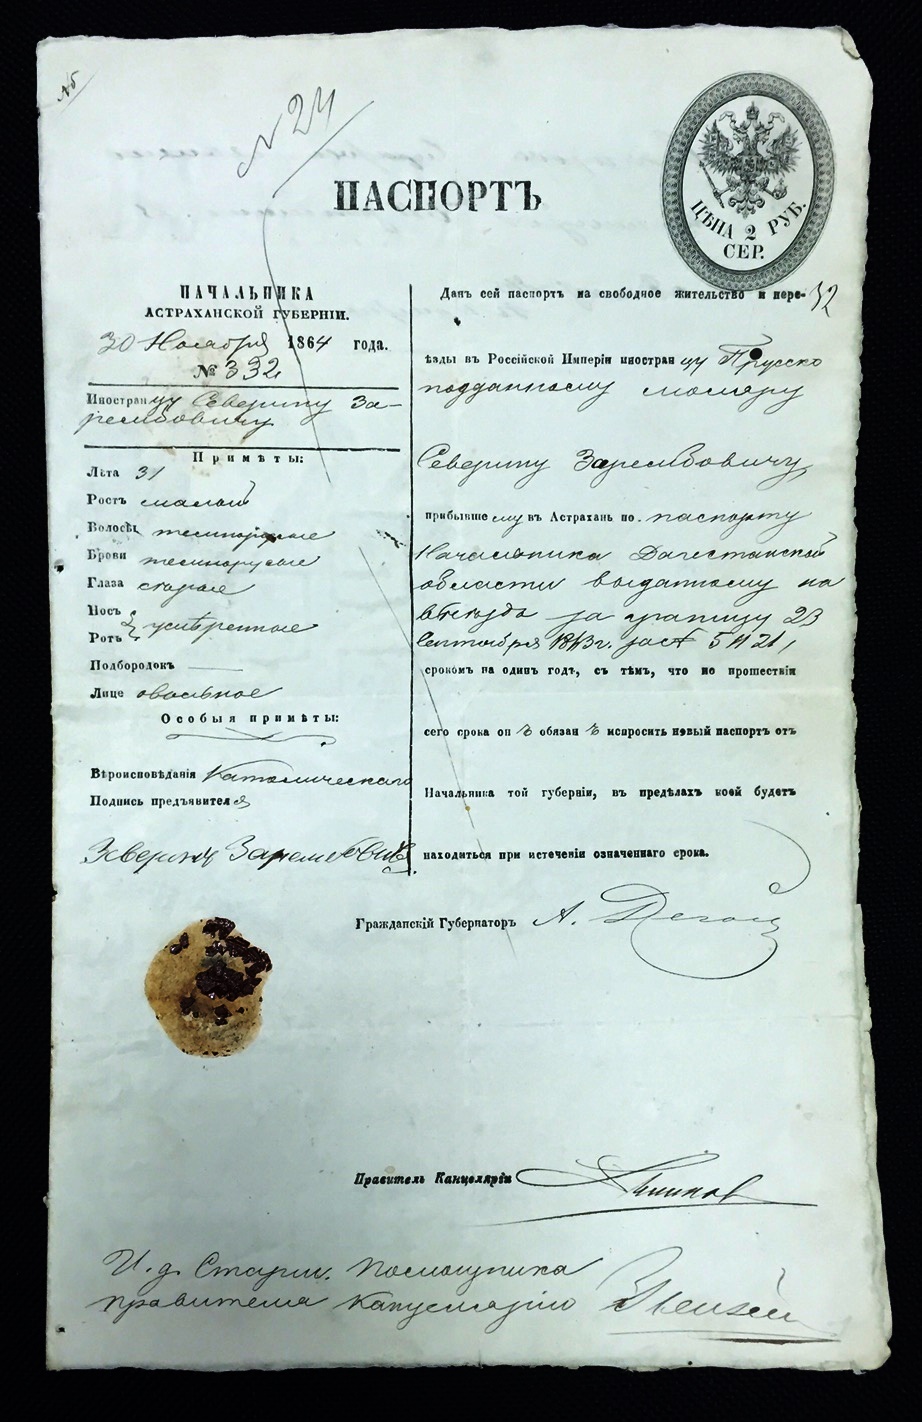 № 24
ПАСПОРТЪ
ЦѢНА 2 РУБ.
СЕР.
НАЧАЛЬНИКА
АСТРАХАНСКОЙ ГУБЕРНІИ.
30 Ноября 1864 года.
№ 332
Иностранцу Северину За-
рембовичу
Примѣты:
Лѣта 31
Ростъ малой
Волосы темнорусые
Брови темнорусые
Глаза
Носъ
Ротъ умѣренные
Подбородокъ —
Лице овальное
Особыя примѣты:
Вѣроисповѣданія Католическаго
Подпись предъявителя
Данъ сей паспортъ на свободное жительство и пере-
ѣзды въ Россійской Имперіи иностранцу Прусско
подданному
Северину Зарембовичу
прибывшему въ Астрахань по паспорту
Начальника Дагестанской
области выданному на
въѣздъ за границу 23
Сентября 1863 г. за №
срокомъ на одинъ годъ, съ тѣмъ, что по прошествіи
сего срока онъ обязанъ испросить новый паспортъ отъ
Начальника той губерніи, въ предѣлахъ коей будетъ
находиться при истеченіи означеннаго срока.
Гражданскій Губернаторъ А. Дегай
Правитель Канцеляріи
И. д. Старш. Помощника
правителя Канцеляріи